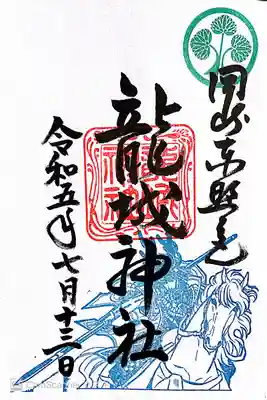 岡崎東照宮
龍城神社
令和五年七月十三日